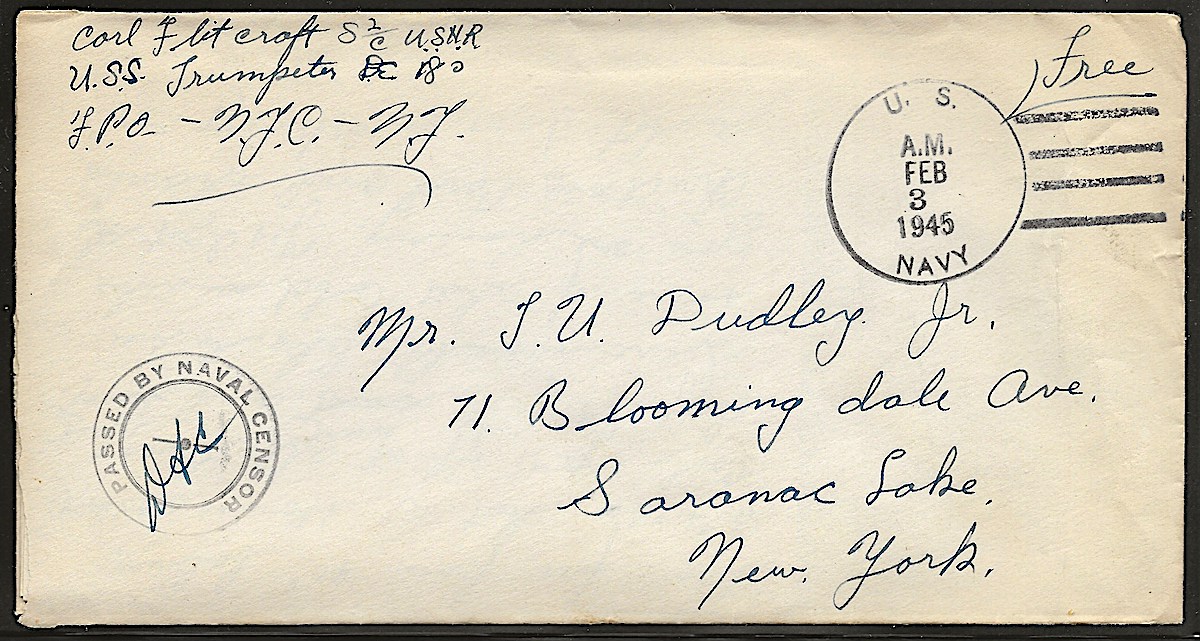 Carl Flitcraft S 2/c U.S.N.R
U.S.S. Trumpeter DE 180
F.P.O. - N.Y.C. - N.Y.
Free
U. S.
A.M.
FEB
3
1945
NAVY
Mr. T. U. Dudley Jr.
71. Bloomingdale Ave.
Saranac Lake.
New. York.
PASSED BY NAVAL CENSOR